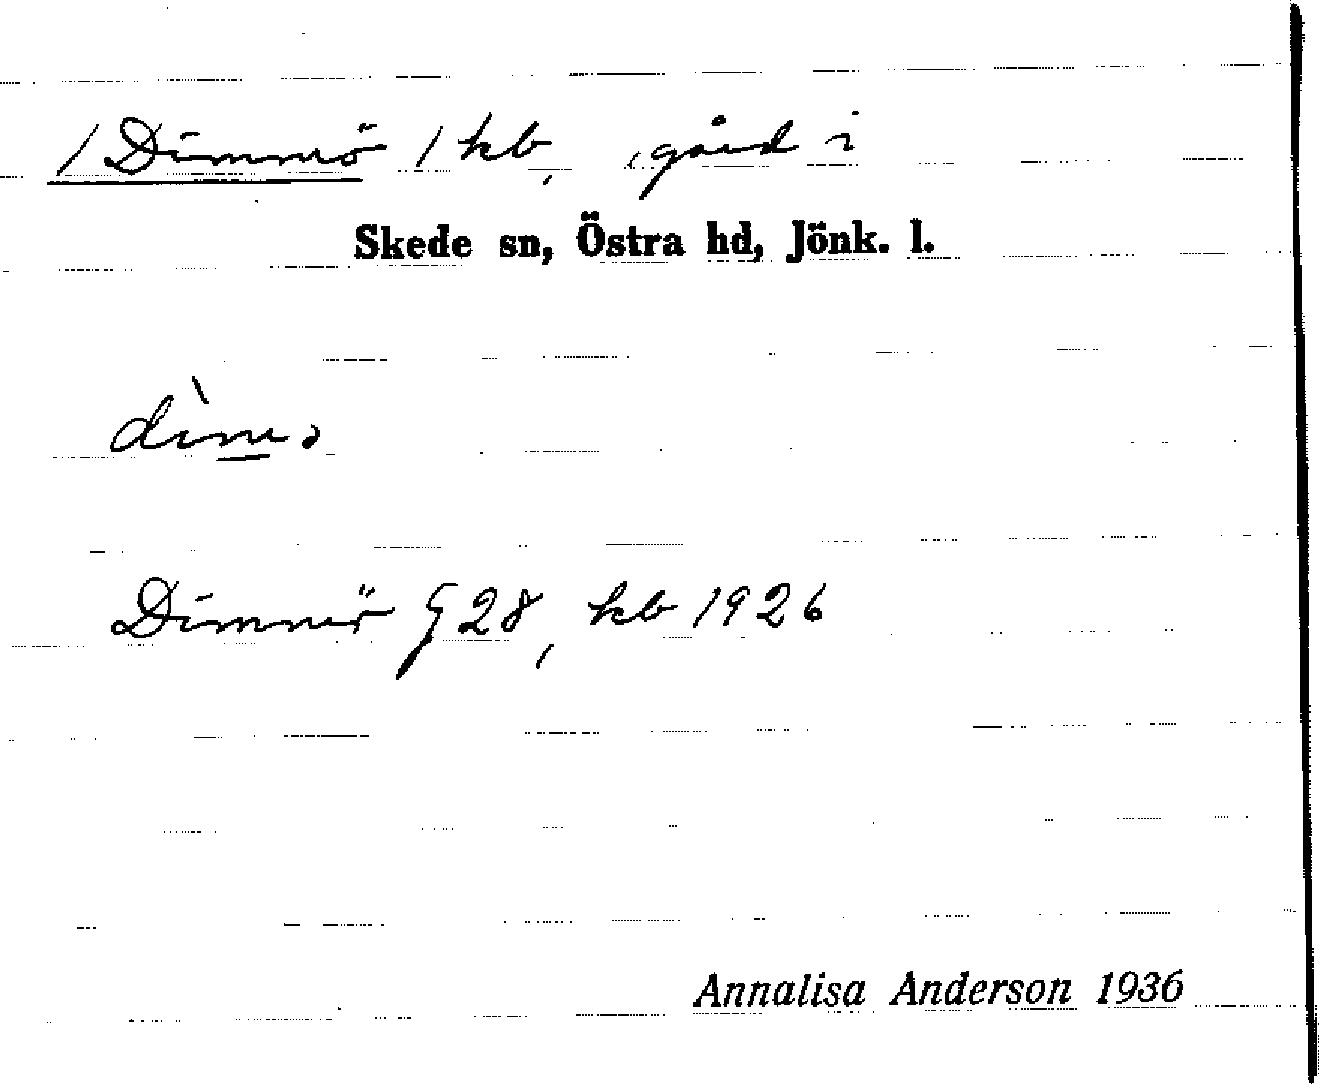 /Dimmö/ kb, gård i
Skede sn, Östra hd, Jönk. l.
Dimmö § 28, kb 1926
Annalisa Anderson 1936